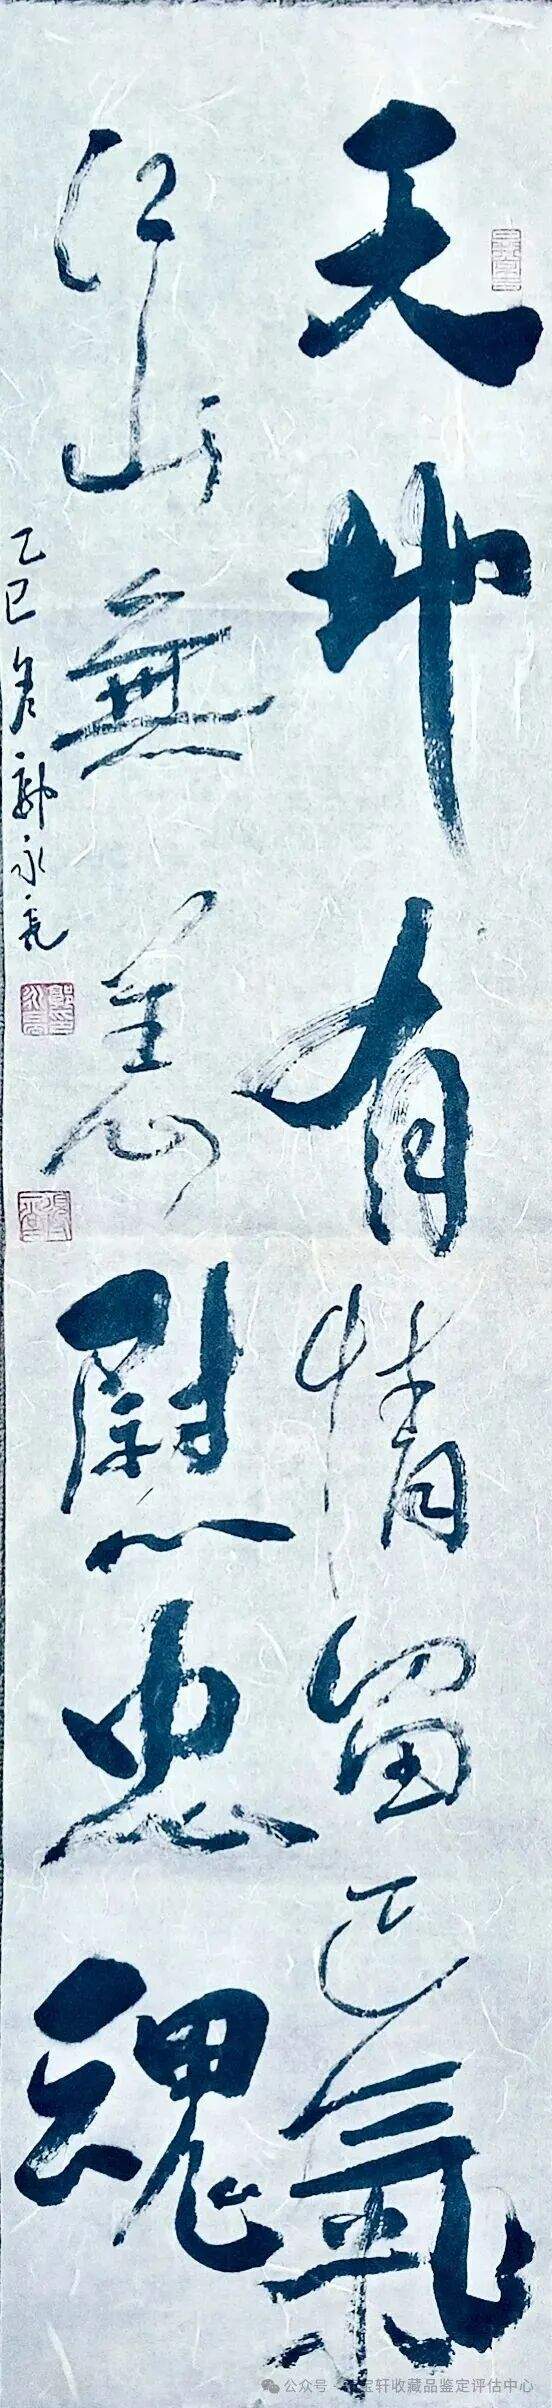 天地有情留正气
江山無恙慰忠魂
乙巳 郭永亮
公众号 · 宝轩收藏品鉴定评估中心